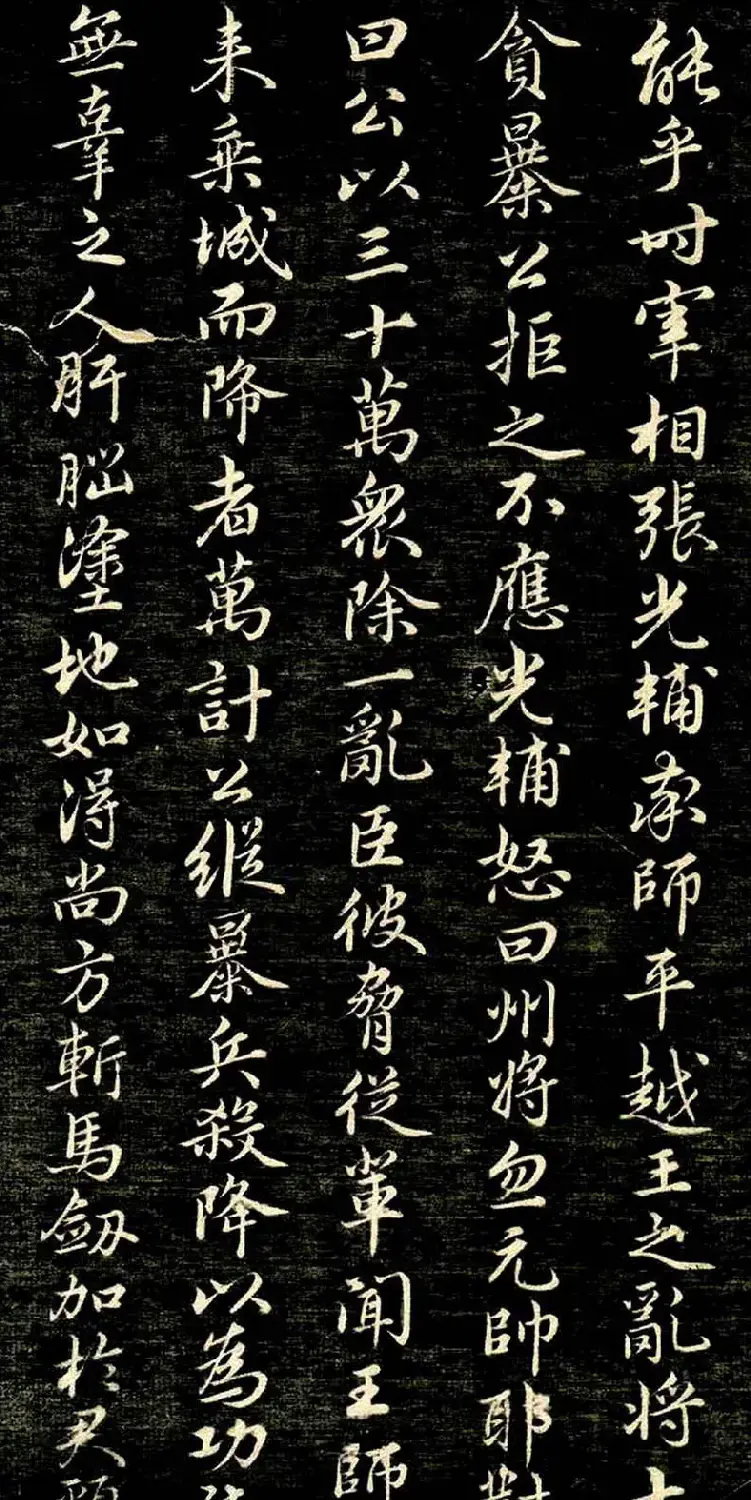 能乎时宰相張光輔率師平越王之亂将士
貪暴公拒之不應光輔怒曰州将忽元帥耶對
曰公以三十萬衆除一亂臣彼脅從輩聞王師
来乗城而降者萬計公縱暴兵殺降以為功
無辜之人肝腦塗地如得尚方斬馬劔加於君頸